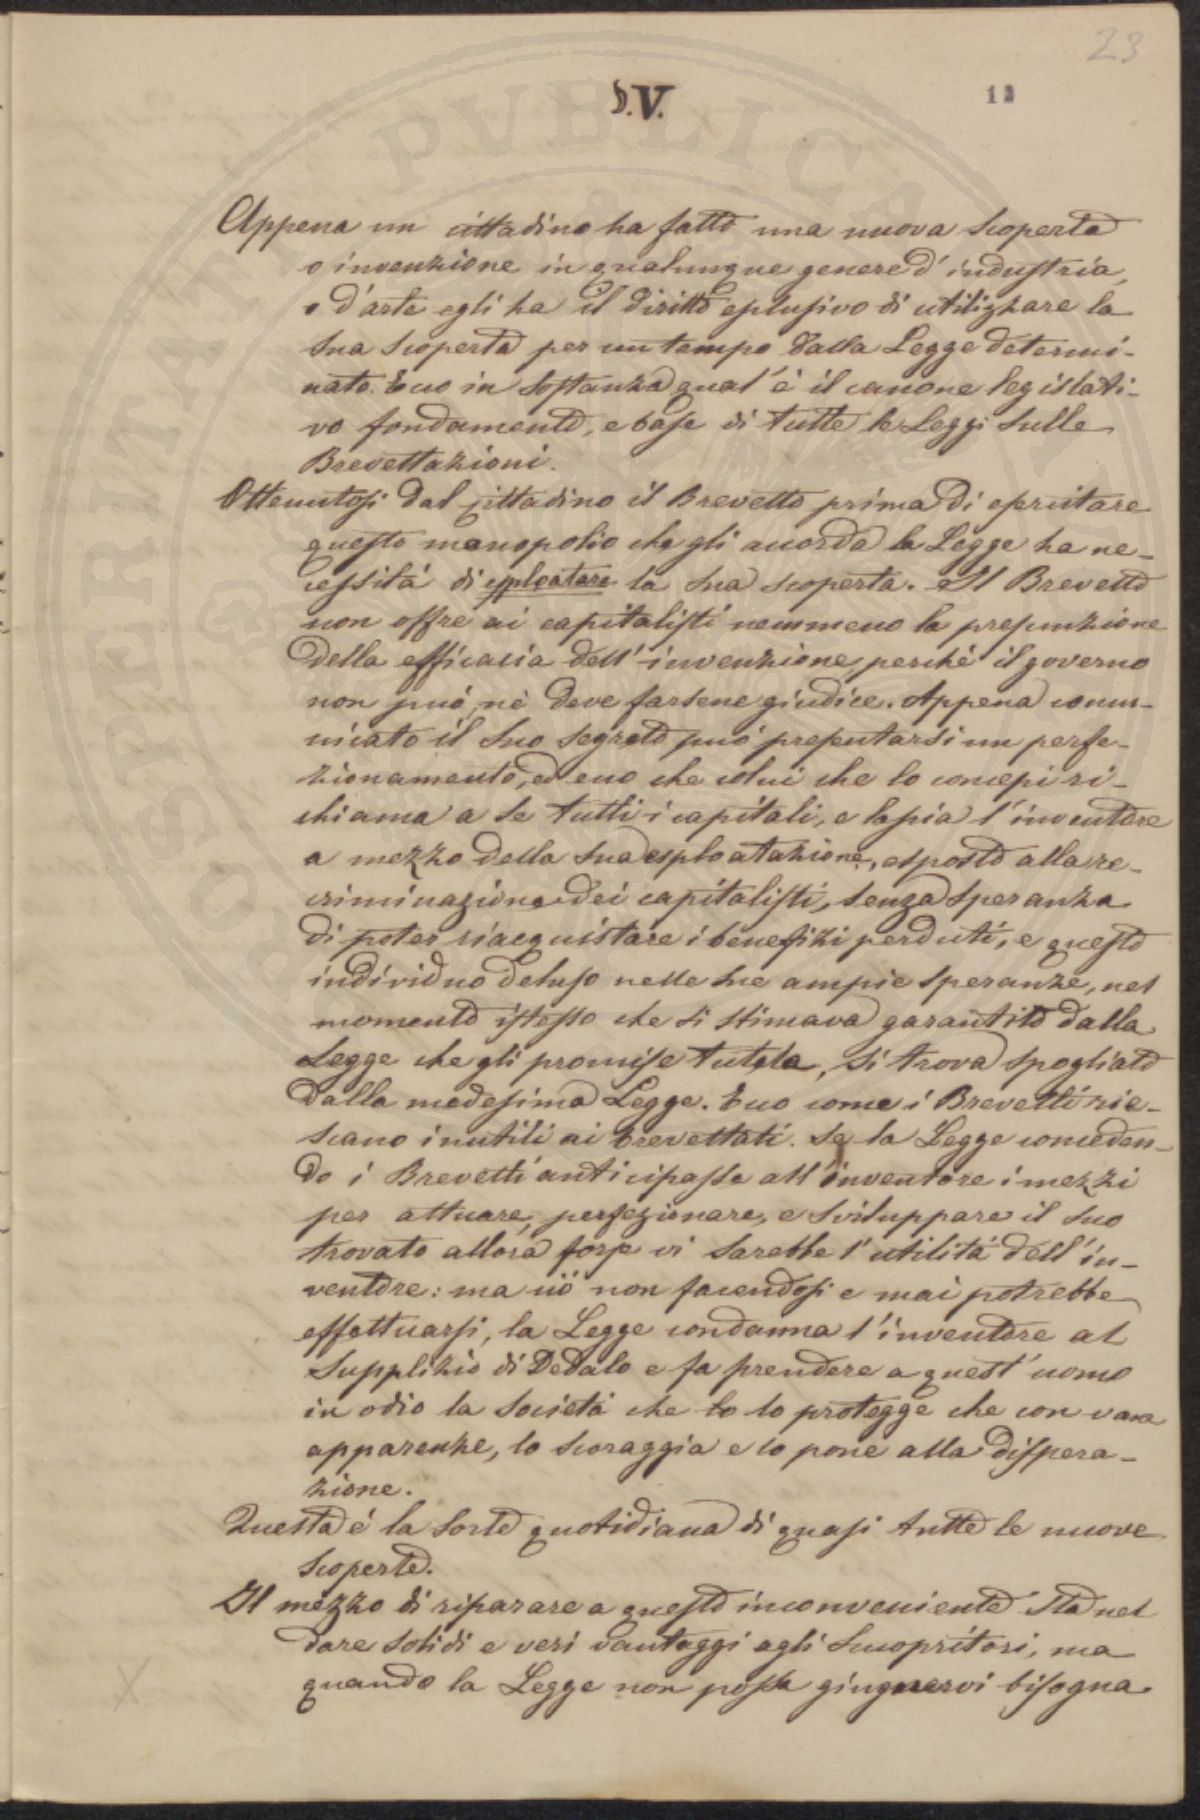 23
§.V.
12
Appena un cittadino ha fatto una nuova scoperta
o invenzione in qualunque genere d'industria,
o d'arte egli ha il diritto esclusivo di utilizzare la
sua scoperta per un tempo dalla Legge determi-
nato. Ecco in sostanza qual'è il canone legislati-
vo fondamento, e base di tutte le Leggi sulle
Brevettazioni.
Ottenutosi dal cittadino il Brevetto prima di
questo monopolio che gli accorda la Legge ha ne-
cessità di esploatare la sua scoperta. Il Brevetto
non offre ai capitalisti nemmeno la presunzione
della efficacia dell'invenzione, perchè il governo
non può, nè deve farsene giudice. Appena comu-
nicato il suo segreto può presentarsi un perfe-
zionamento, ed ecco che colui che lo concepì ri-
chiama a se tutti i capitali, e lascia l'inventore
a mezzo della sua esploatazione, esposto alla re-
criminazione dei capitalisti, senza speranza
di poter riacquistare i benefizi perduti, e questo
individuo deluso nelle sue ampie speranze, nel
momento istesso che si stimava garantito dalla
Legge che gli promise tutela, si trova spogliato
dalla medesima Legge. Ecco come i Brevetti rie-
scano inutili ai brevettati. Se la Legge conceden-
do i Brevetti anticipasse all'inventore i mezzi
per attuare, perfezionare, e sviluppare il suo
trovato allora forse vi sarebbe l'utilità dell'in-
ventore: ma ciò non facendosi e mai potrebbe
effettuarsi, la Legge condanna l'inventore al
supplizio di Dedalo e fa prendere a quest'uomo
in odio la società che lo lo protegge che con vane
apparenze, lo scoraggia e lo pone alla dispera-
zione.
Questa è la sorte quotidiana di quasi tutte le nuove
scoperte.
Il mezzo di riparare a questo inconveniente sta nel
dare solidi e veri vantaggi agli scuopritori, ma
quando la Legge non possa giugnervi bisogna
SOSPERITATI PVBLICAE